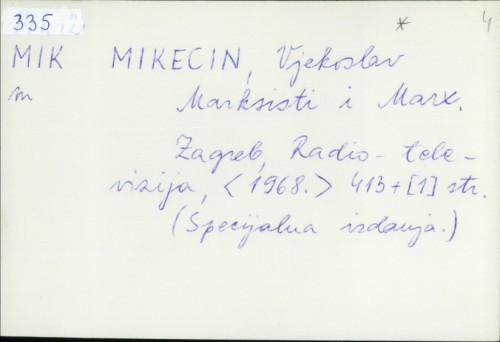 335 12 * 4
MIK MIKECIN, Vjekoslav
m Marksisti i Marx.
Zagreb, Radio-tele-
vizija, <1968.> 413+[1] str.
(Specijalna izdanja.)